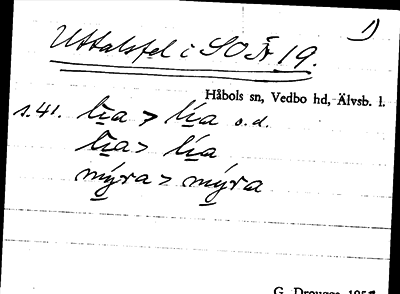 1)
Uttalsfel i SOÄ 19.
Håbols sn, Vedbo hd, Älvsb. l.
s. 41. lı̲̄a > lı̲́a o.d.
lı̲̄a > lı̲́a
mȳ̲ra > mý̲ra
G. Drougge 195